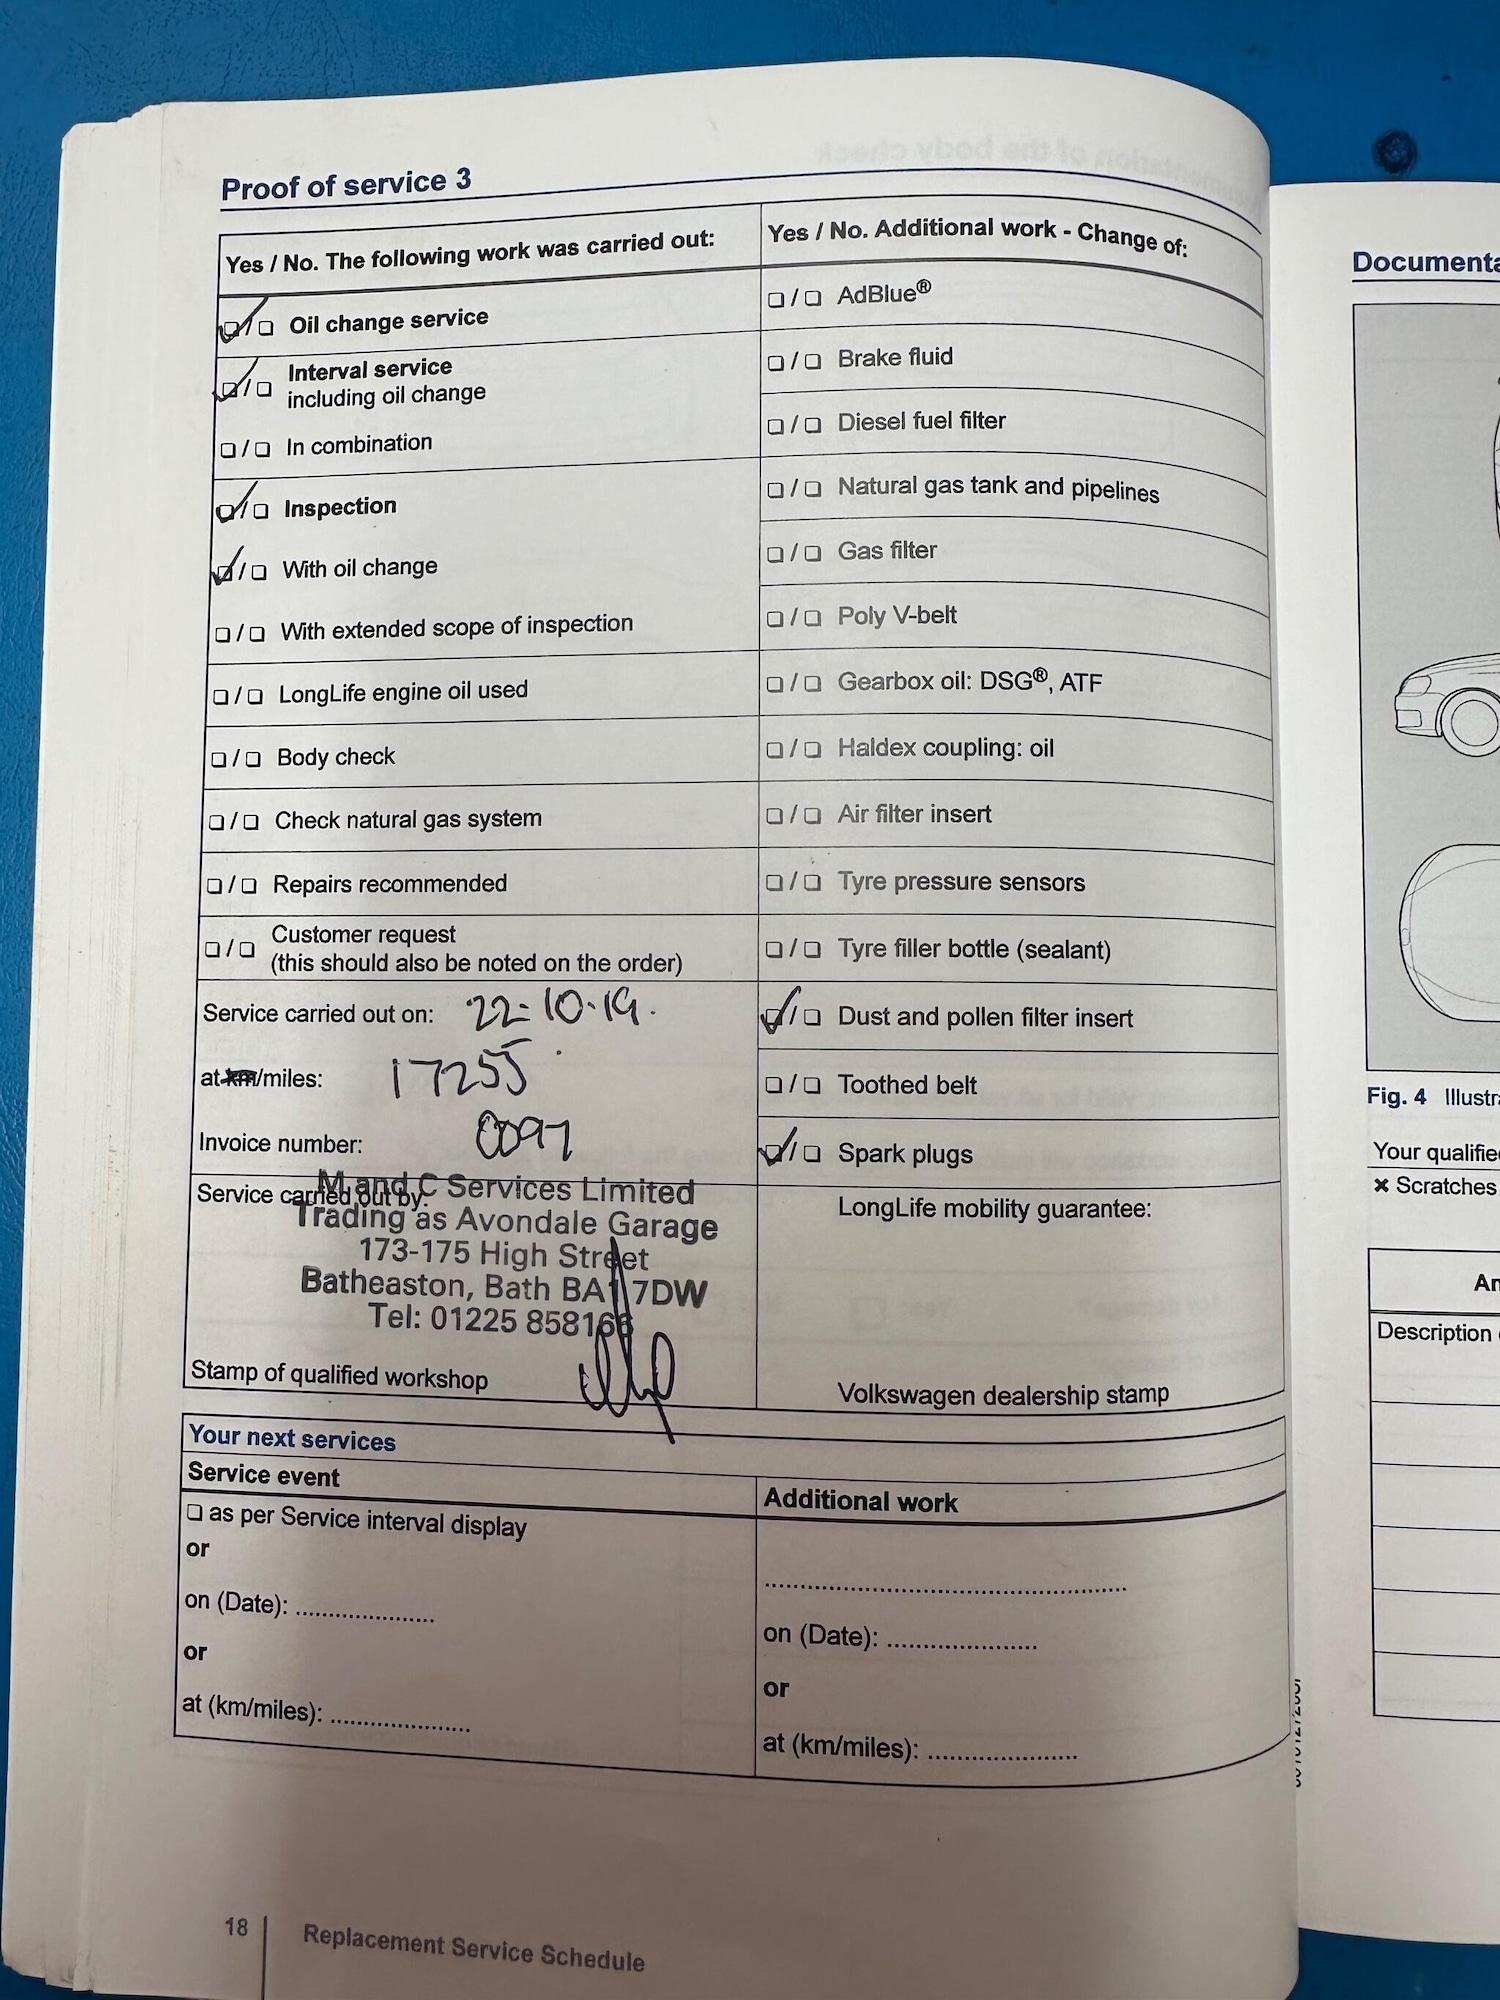 Proof of service 3
Yes / No. The following work was carried out:
❑ / ❑ Oil change service
❑ / ❑ Interval service
including oil change
❑ / ❑ In combination
❑ / ❑ Inspection
❑ / ❑ With oil change
❑ / ❑ With extended scope of inspection
❑ / ❑ LongLife engine oil used
❑ / ❑ Body check
❑ / ❑ Check natural gas system
❑ / ❑ Repairs recommended
❑ / ❑ Customer request
(this should also be noted on the order)
Service carried out on: 22-10-19.
at km/miles: 17255
Invoice number: 0097
Service carried out by:
M and C Services Limited
Trading as Avondale Garage
173-175 High Street
Batheaston, Bath BA1 7DW
Tel: 01225 858166
Stamp of qualified workshop
Yes / No. Additional work - Change of:
❑ / ❑ AdBlue®
❑ / ❑ Brake fluid
❑ / ❑ Diesel fuel filter
❑ / ❑ Natural gas tank and pipelines
❑ / ❑ Gas filter
❑ / ❑ Poly V-belt
❑ / ❑ Gearbox oil: DSG®, ATF
❑ / ❑ Haldex coupling: oil
❑ / ❑ Air filter insert
❑ / ❑ Tyre pressure sensors
❑ / ❑ Tyre filler bottle (sealant)
❑ / ❑ Dust and pollen filter insert
❑ / ❑ Toothed belt
❑ / ❑ Spark plugs
LongLife mobility guarantee:
Volkswagen dealership stamp
Your next services
Service event
❑ as per Service interval display
or
on (Date): ....................
or
at (km/miles): ....................
Additional work
....................................................
on (Date): ......................
or
at (km/miles): ......................
18
Replacement Service Schedule
Documenta
Fig. 4 Illustr
Your qualifie
× Scratches
An
Description